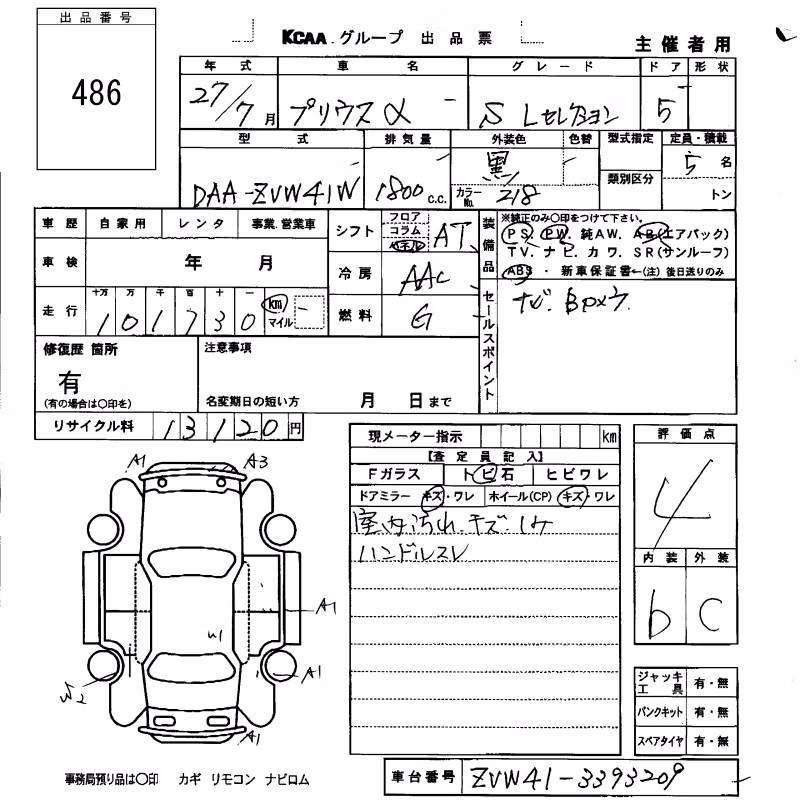 出品番号
486
KCAA グループ 出品票
主催者用
年式 車名 グレード ドア 形状
27/7月 プリウスα S Lセレクション 5
型式 排気量 外装色 色替 型式指定 定員・積載
DAA-ZVW41W 1800c.c. 黒 カラーNo. 218 類別区分 5名 トン
車歴 自家用 レンタ 事業.営業車
車検 年 月
走行 十万 万 千 百 十 一
101730 km マイル
シフト フロア コラム パネル AT
冷房 AAC
燃料 G
装備品
※純正のみ○印をつけて下さい。
PS. PW. 純AW. AB(エアバック)
TV. ナビ. カワ. SR(サンルーフ)
ABS ・ 新車保証書←(注) 後日送りのみ
セールスポイント
ナビ. Bカメラ.
修復歴 箇所
有
(有の場合は○印を)
注意事項
名変期日の短い方 月 日まで
リサイクル料 13120円
現メーター指示 km
【査定員記入】
Fガラス トビ石 ヒビワレ
ドアミラー キズ・ワレ ホイール(CP) キズ・ワレ
室内汚れ.キズ.
ハンドルスレ
評価点
4
内装 外装
b C
A1 A3
A1
W1
A1
W2
A1
ジャッキ工具 有・無
パンクキット 有・無
スペアタイヤ 有・無
事務局預り品は○印 カギ リモコン ナビロム
車台番号 ZVW41-3393209